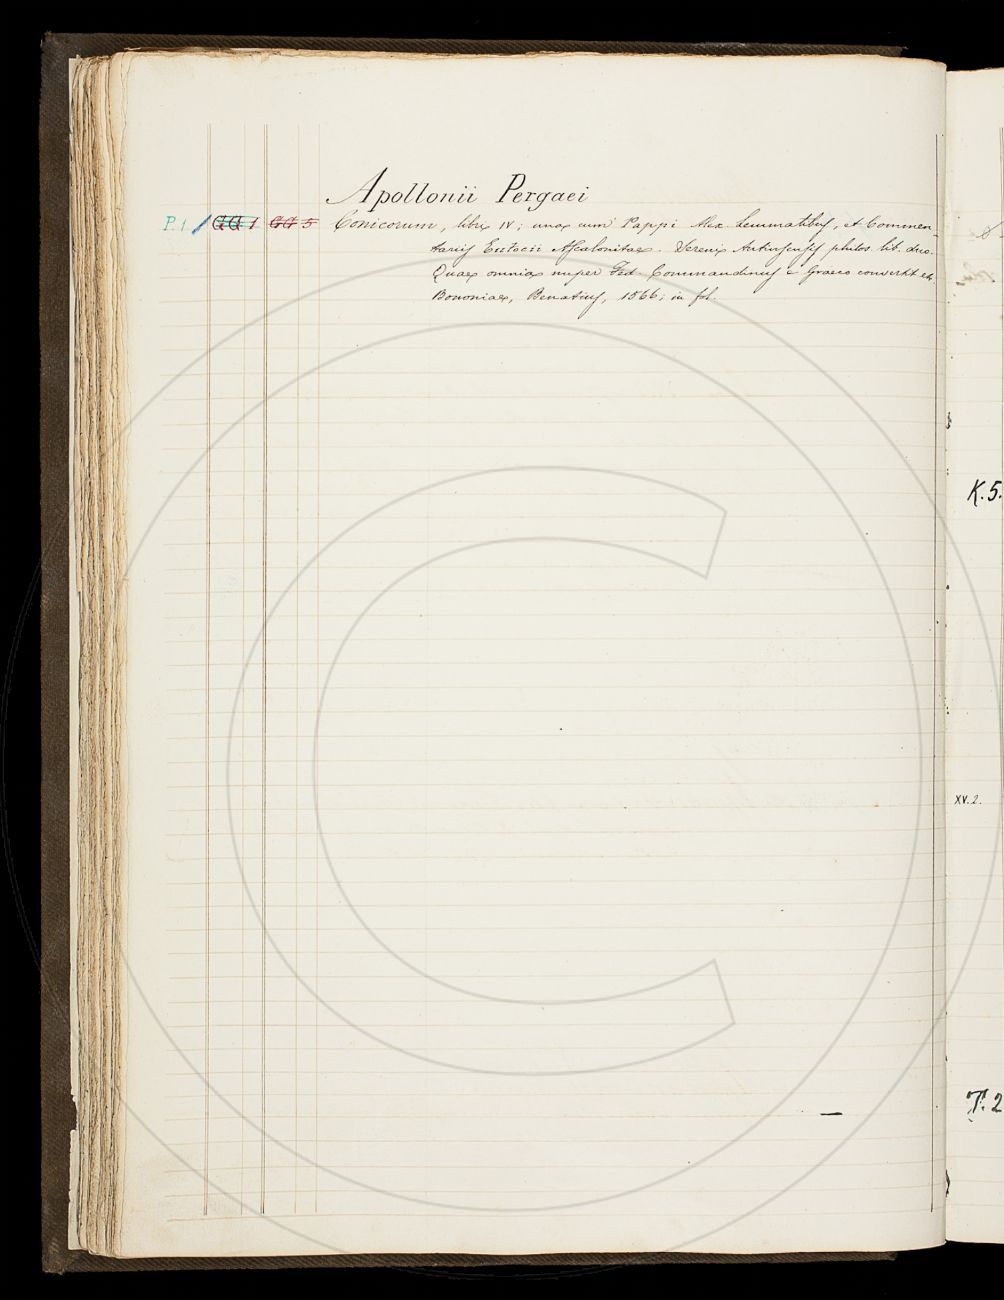 Apollonii Pergaei
P.1 GG 1 GG 5 Conicorum, libri IV; una cum Pappi Alex. Lemmatibus, et Commen-
tariis Eutocii Ascalonitae. Sereni Antinsensis philos. lib. duo.
Quae omnia nuper Fed. Commandinus e Graeco convertit etc.
Bononiae, Benatius, 1566; in fol.
K.5.
XV.2.
T.2